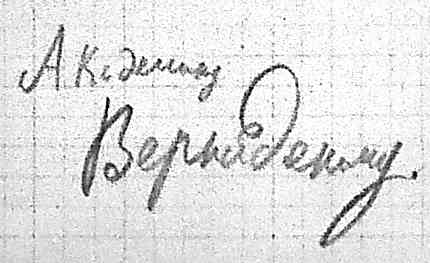 Академику
Вернадскому.